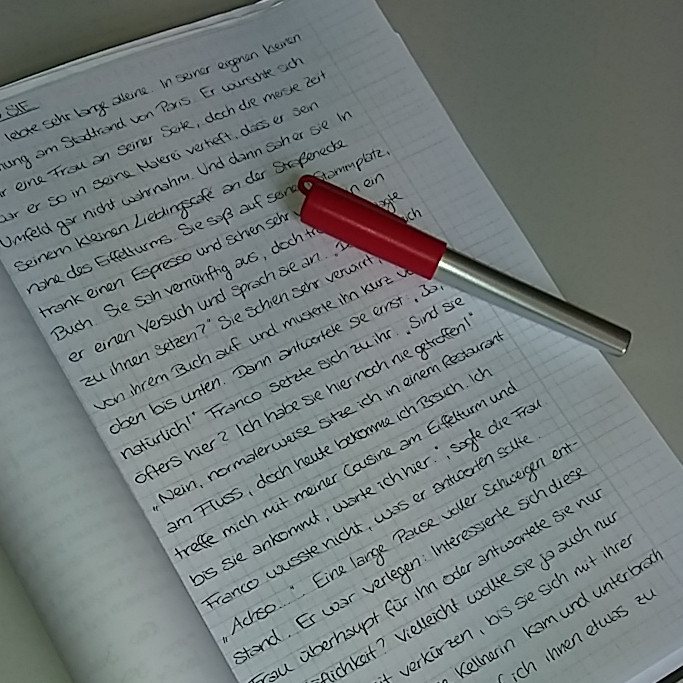 SIE
lebte sehr lange alleine. In seiner eigenen kleinen
nung am Stadtrand von Paris. Er wünschte sich
r eine Frau an seiner Seite, doch die meiste Zeit
ar er so in seine Malerei vertieft, dass er sein
Umfeld gar nicht wahrnahm. Und dann sah er sie in
seinem kleinen Lieblingscafé an der Straßenecke
nahe des Eiffelturms. Sie saß auf seine Stammplatz,
trank einen Espresso und schien sehr n ein
Buch. Sie sah vernünftig aus, doch agte
er einen Versuch und sprach sie an. ich
zu ihnen setzen?" Sie schien sehr verwirrt,
von ihrem Buch auf und musterte ihn kurz v
oben bis unten. Dann antwortete sie ernst: „Ja,
natürlich!" Franco setzte sich zu ihr. „Sind sie
öfters hier? Ich habe sie hier noch nie getroffen!"
„Nein, normalerweise sitze ich in einem Restaurant
am Fluss, doch heute bekomme ich Besuch. Ich
treffe mich mit meiner Cousine am Eiffelturm und
bis sie ankommt, warte ich hier.", sagte die Frau
Franco wusste nicht, was er antworten sollte.
„Achso...." Eine lange Pause voller Schweigen ent-
stand. Er war verlegen. Interessierte sich diese
Frau überhaupt für ihn oder antwortete sie nur
flichkeit? Vielleicht wollte sie ja auch nur
it verkürzen, bis sie sich mit ihrer
Kellnerin kam und unterbrach
ich ihnen etwas zu